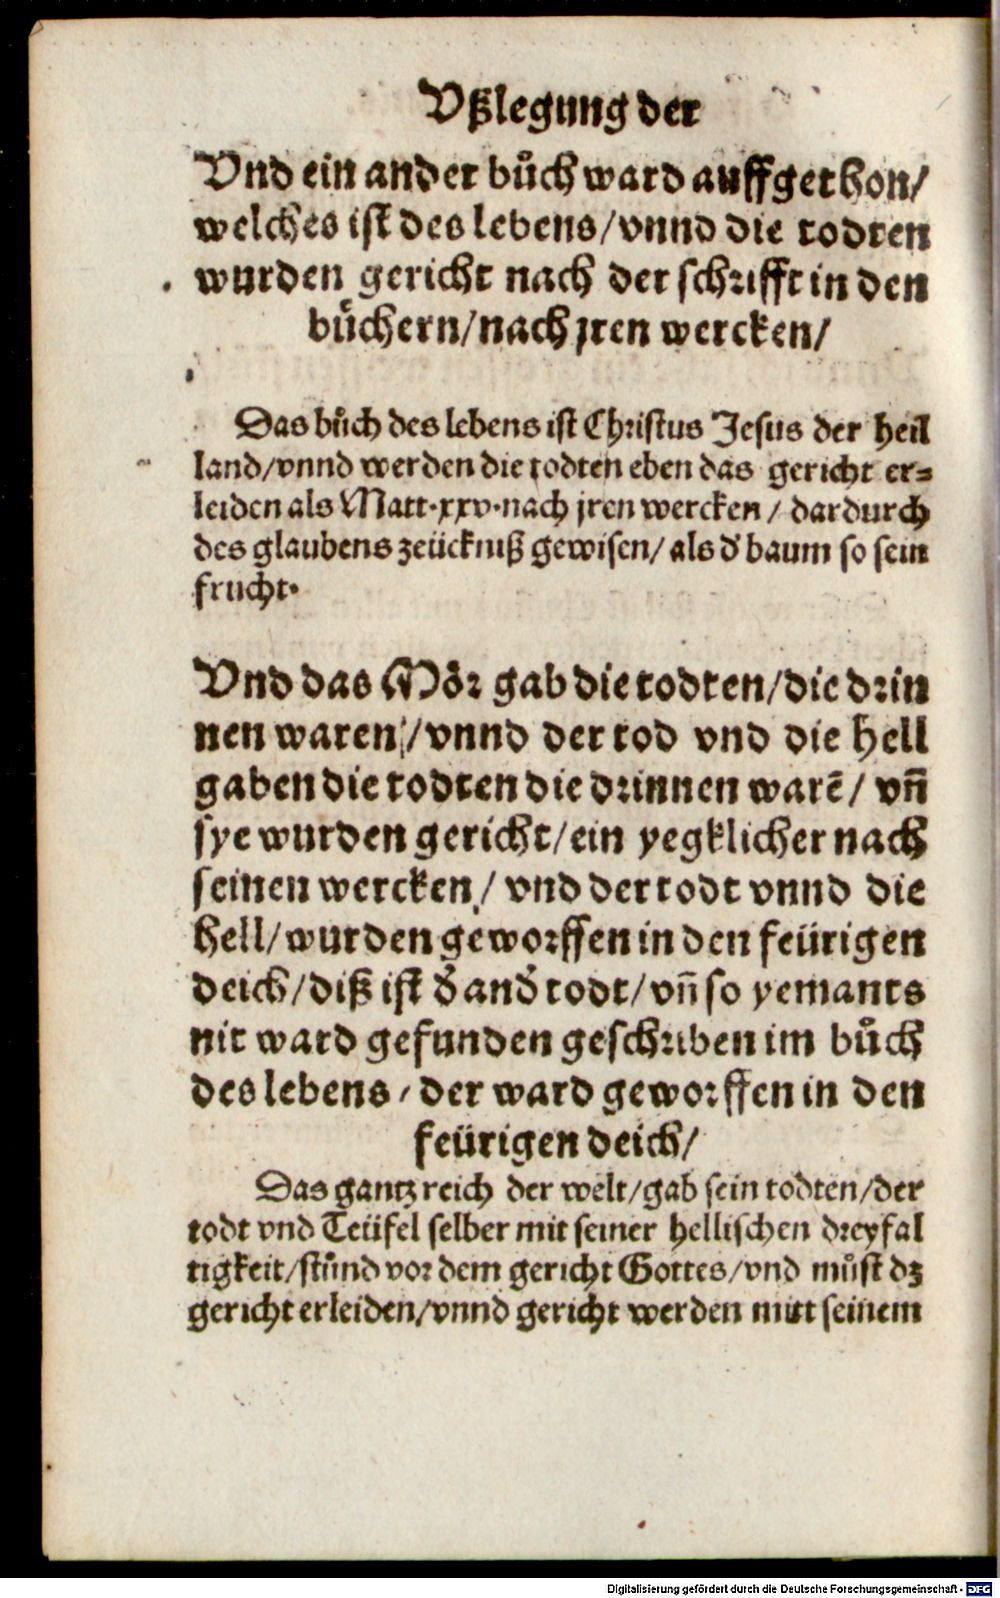 Vßlegung der
Vnd ein ander bůch ward auffgethon/
welches ist des lebens/vnnd die todten
wurden gericht nach der schrifft in den
bůchern/nach jren wercken/
Das bůch des lebens ist Christus Jesus der heil
land/vnnd werden die todten eben das gericht er-
leiden als Matt.xxv.nach jren wercken/ dardurch
des glaubens zeückniß gewisen/ als d' baum so sein
frucht.
Vnd das Mör gab die todten/die drin
nen waren/vnnd der tod vnd die hell
gaben die todten die drinnen warē/ vñ
sye wurden gericht/ein yegklicher nach
seinen wercken/ vnd der todt vnnd die
hell/wurden geworffen in den feürigen
deich/diß ist d' and' todt/vñ so yemants
nit ward gefunden geschriben im bůch
des lebens/der ward geworffen in den
feürigen deich/
Das gantz reich der welt/gab sein todten/der
todt vnd Teüfel selber mit seiner hellischen dreyfal
tigkeit/stůnd vor dem gericht Gottes/vnd můst dz
gericht erleiden/vnnd gericht werden mitt seinem
Digitalisierung gefördert durch die Deutsche Forschungsgemeinschaft - DFG